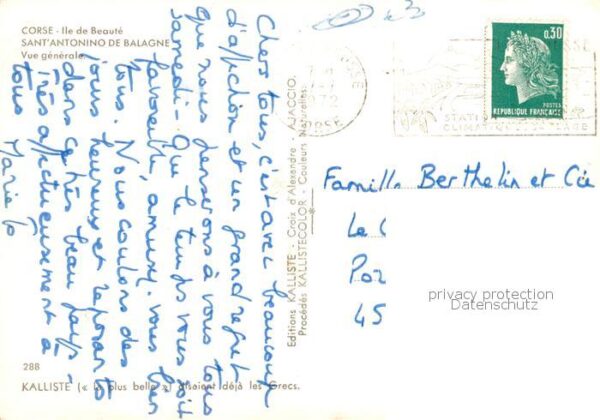 CORSE - Ile de Beauté
SANT'ANTONINO DE BALAGNE
Vue générale
Chers tous, c'est avec beaucoup
d'affection et un grand regret
que nous penserons à vous tous
samedi - Que le temps vous soit
favorable, amusez-vous bien
tous. Nous coulons des
jours heureux et reposants
dans ce très beau pays -
Très affectueusement à
tous
Marie
288
KALLISTE (« la plus belle ») disaient déjà les Grecs.
Editions KALLISTE - Croix d'Alexandre - AJACCIO.
Procédés KALLISTECOLOR - Couleurs Naturelles.
1972
CORSE
STATI
CLIMATIQUE
0,30
POSTES
REPUBLIQUE FRANÇAISE
Famille Berthelin et Cie
Le C
Poz
45
privacy protection
Datenschutz